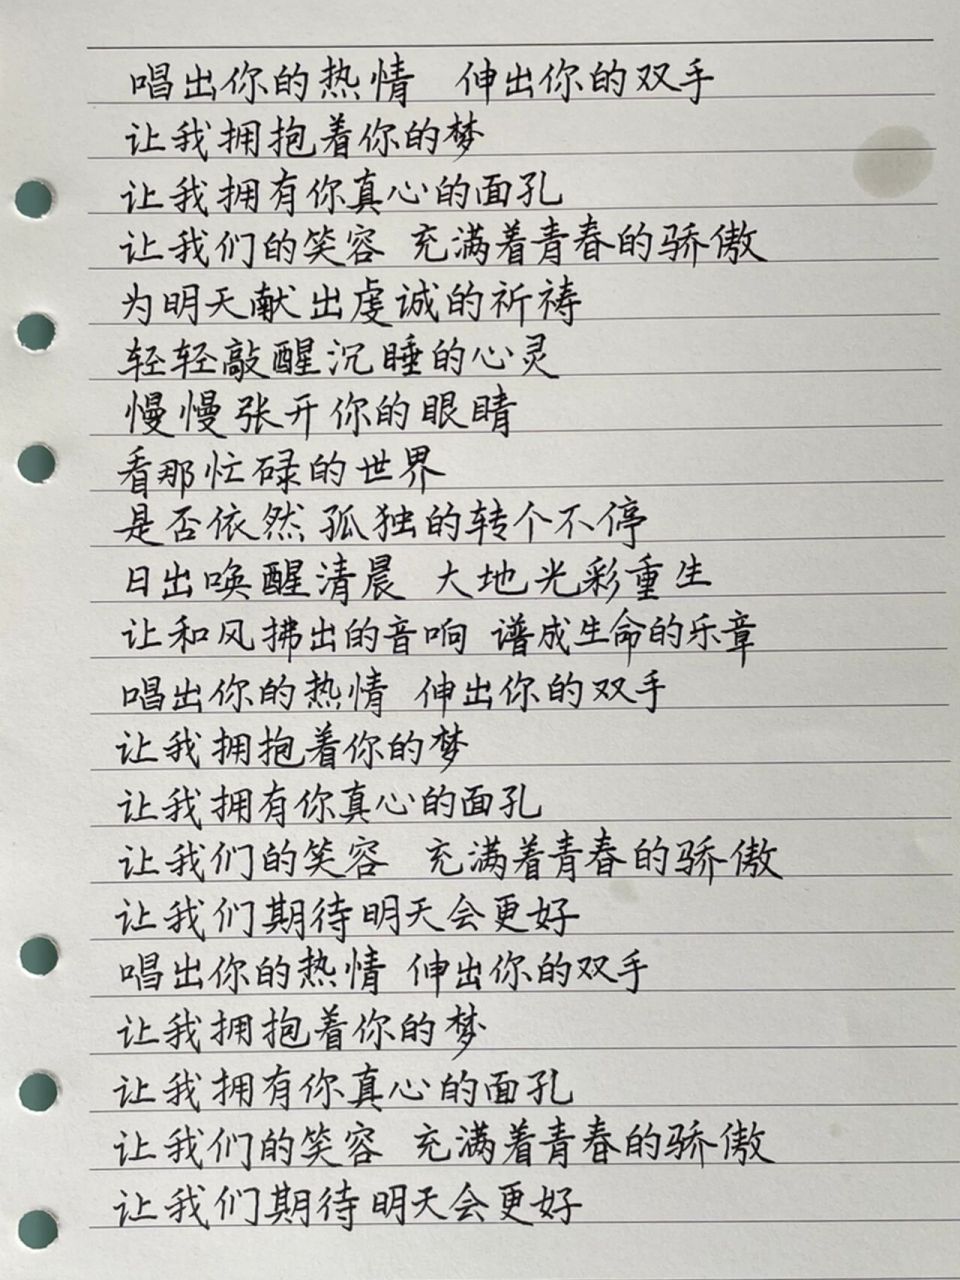 唱出你的热情 伸出你的双手
让我拥抱着你的梦
让我拥有你真心的面孔
让我们的笑容 充满着青春的骄傲
为明天献出虔诚的祈祷
轻轻敲醒沉睡的心灵
慢慢张开你的眼睛
看那忙碌的世界
是否依然孤独的转个不停
日出唤醒清晨 大地光彩重生
让和风拂出的音响 谱成生命的乐章
唱出你的热情 伸出你的双手
让我拥抱着你的梦
让我拥有你真心的面孔
让我们的笑容 充满着青春的骄傲
让我们期待明天会更好
唱出你的热情 伸出你的双手
让我拥抱着你的梦
让我拥有你真心的面孔
让我们的笑容 充满着青春的骄傲
让我们期待明天会更好